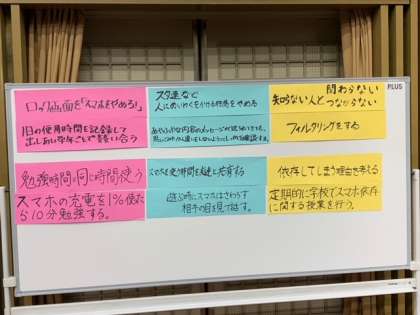 ロック画面を「スマホをやめろ!」
1日の使用時間を記録して
出しあい学年ごとで競い合う
スタ連など
人にめいわくをかける行為をやめる
関わらない
知らない人とつながらない
PLUS
フィルタリングをする
勉強時間と同じ時間使う
スマホを使う時間を家族と共有する
依存してしまう理由を考える
スマホの充電を1%使った
ら10分勉強する。
遊ぶ時にスマホはさわらず
相手の目を見て話す。
定期的に学校でスマホ依存
に関する授業を行う。